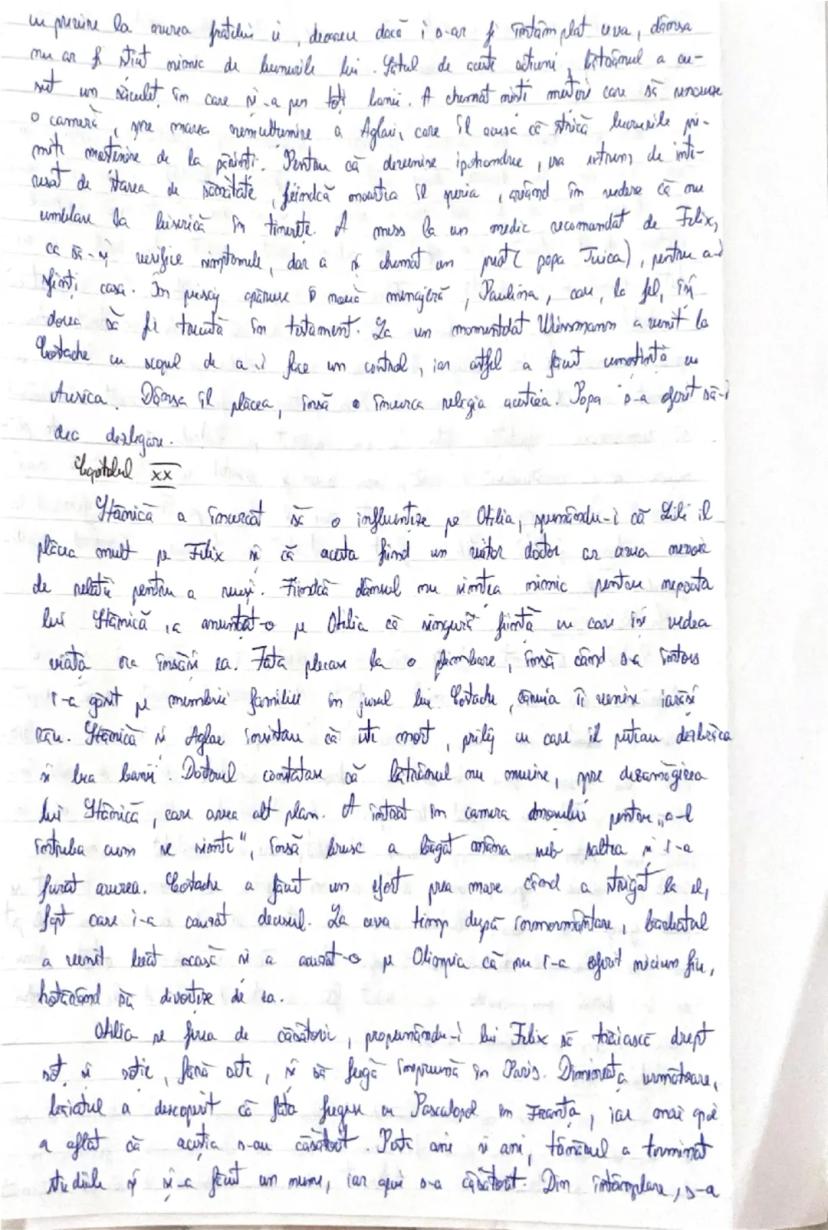 cu privire la averea fratelui ei, deoarece dacă i s-ar fi întâmplat ceva, dânsa
nu ar fi știut nimic de bunurile lui. Sătul de aceste acțiuni, bătrânul a cu-
sut un săculeț în care și-a pus toți banii. A chemat niște meșteri care să renoveze
o cameră, spre marea nemulțumire a Aglaei, care îl acuza că strică lucrurile pri-
mite moștenire de la părinți. Pentru că devenise ipohondru, era extrem de inte-
resat de starea de sănătate, fiindcă moartea îl speria, având în vedere că nu
umblase la biserică în tinerețe. A mers la un medic recomandat de Felix,
ca să-și verifice simptomele, dar a și chemat un preot (popa Țuica), pentru a-i
sfinți casa. În peisaj apăruse o nouă menajeră, Paulina, care, la fel, își
dorea să fie trecută în testament. La un momentdat Weissmann a venit la
Costache cu scopul de a-i face un control, iar astfel a făcut cunoștință cu
Aurica. Dânsa îl plăcea, însă o încurca religia acestuia. Popa s-a oferit să-i
dea dezlegare.
Capitolul XX
Stănică a încercat să o influențeze pe Otilia, spunându-i că Lili îl
plăcea mult pe Felix și că acesta fiind un viitor doctor ar avea nevoie
de relații pentru a reuși. Fiindcă dânsul nu simțea nimic pentru nepoata
lui Stănică, a anunțat-o pe Otilia că singură ființă cu care își vedea
viața era însăși ea. Fata plecase la o plimbare, însă când s-a întors
i-a găsit pe membrii familiei în jurul lui Costache, căruia îi venise iarăși
rău. Stănică și Aglae insistau că este mort, prilej cu care îl puteau dezbrăca
și lua banii. Doctorul constatase că bătrânul nu murise, spre dezamăgirea
lui Stănică, care avea alt plan. A intrat în camera domnului pentru „a-l
întreba cum se simte", însă brusc a băgat mâna sub saltea și i-a
furat averea. Costache a făcut un efort prea mare când a strigat la el,
fapt care i-a cauzat decesul. La ceva timp după înmormântare, barbatul
a venit beat acasă și a acuzat-o pe Olimpia că nu i-a oferit niciun fiu,
hotărând să divorțeze de ea.
Otilia se ferea de căsătorii, propunându-i lui Felix să trăiască drept
soț și soție, fără acte, și să fugă împreună în Paris. Dimineața următoare,
băiatul a descoperit că fata fugise cu Pascalopol în Franța, iar mai apoi
a aflat că aceștia s-au căsătorit. Peste ani și ani, tânărul a terminat
studiile și și-a făcut un nume, iar apoi s-a căsătorit. Din întâmplare, s-a